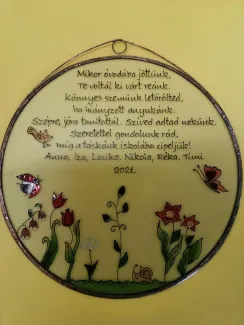 Mikor óvodába jöttünk,
Te voltál ki várt reánk.
Könnyes szemünk letörölted,
ha hiányzott anyukánk.
Szépre, jóra tanítottál. Szíved adtad nekünk.
Szeretettel gondolunk rád,
míg a táskánk iskolába cipeljük!
Anna, Iza, Lacika, Nikola, Réka, Timi.
2021.